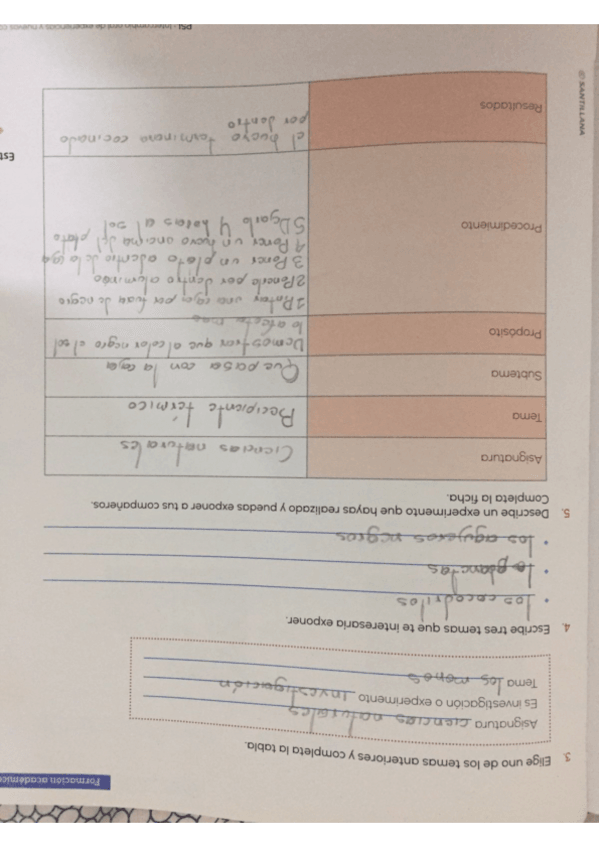 Formación académica
3. Elige uno de los temas anteriores y completa la tabla.
Asignatura ciencias naturales
Es investigación o experimento investigación
Tema los monos
4. Escribe tres temas que te interesaría exponer.
• los cocodrilos
• la plantas
• los agujeros negros
5. Describe un experimento que hayas realizado y puedas exponer a tus compañeros.
Completa la ficha.
Asignatura
Ciencias naturales
Tema
Recipiente térmico
Subtema
Que pasa con la caja
Propósito
Demostrar que al color negro el sol
lo afecta mas
Procedimiento
1 Pintar una caja por fuera de negro
2 Ponerlo por dentro aluminio
3 Poner un plato adentro de la caja
4 Poner un huevo encima del plato
5 Dejarlo 4 horas al sol
Resultados
el huevo terminara cocinado
por dentro
© SANTILLANA
PSI - Intercambio oral de experiencias y nuevos
Est